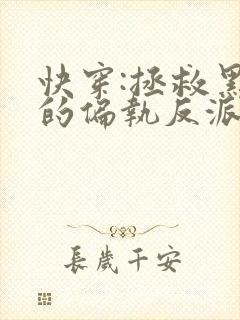 快穿:拯救黑
的偏执反派
長歲千安